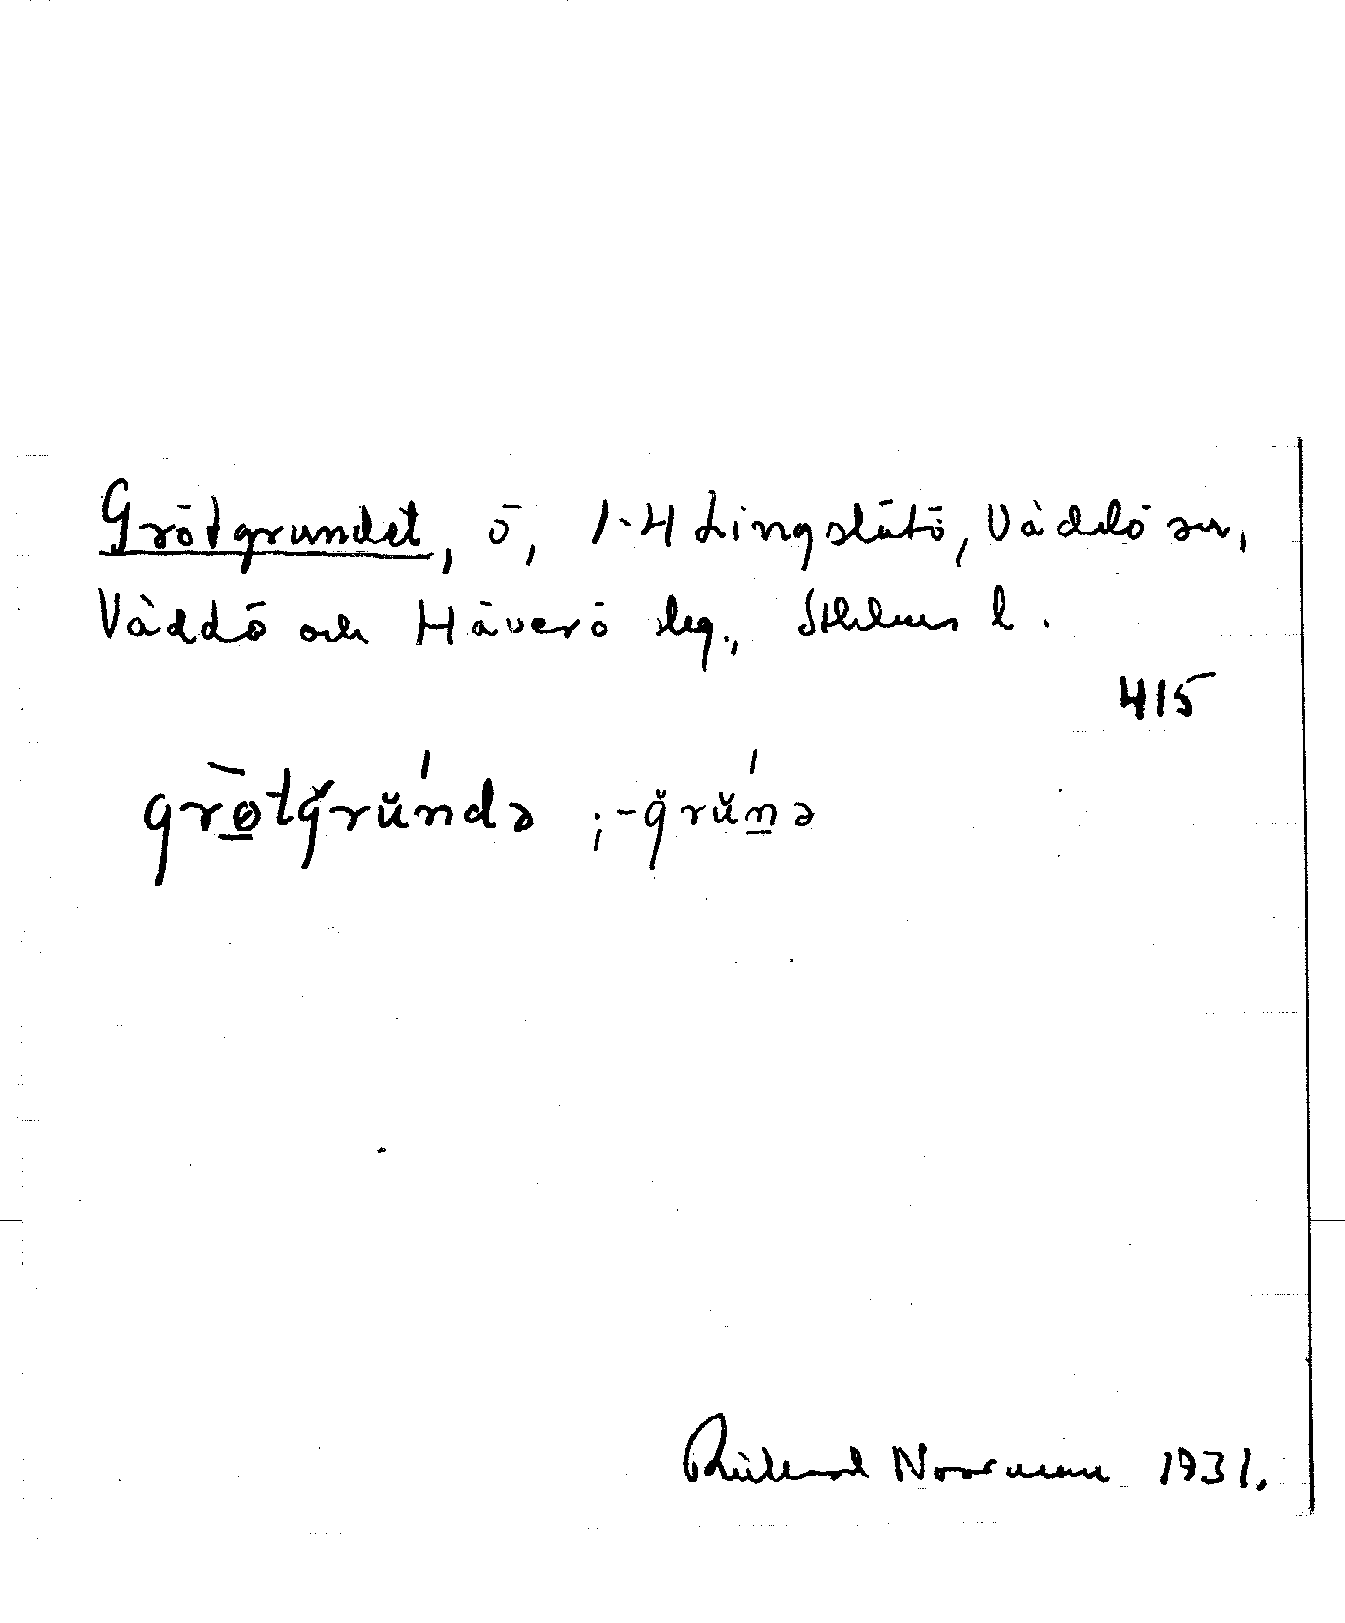 Grötgrundet, ö, 1-4 Lingslätö, Väddö sn,
Väddö och Häverö slg., Sthlms l.
415
grø̄tgrŭ́ndə ; -grŭ́nə
Rickard Norrman 1931.